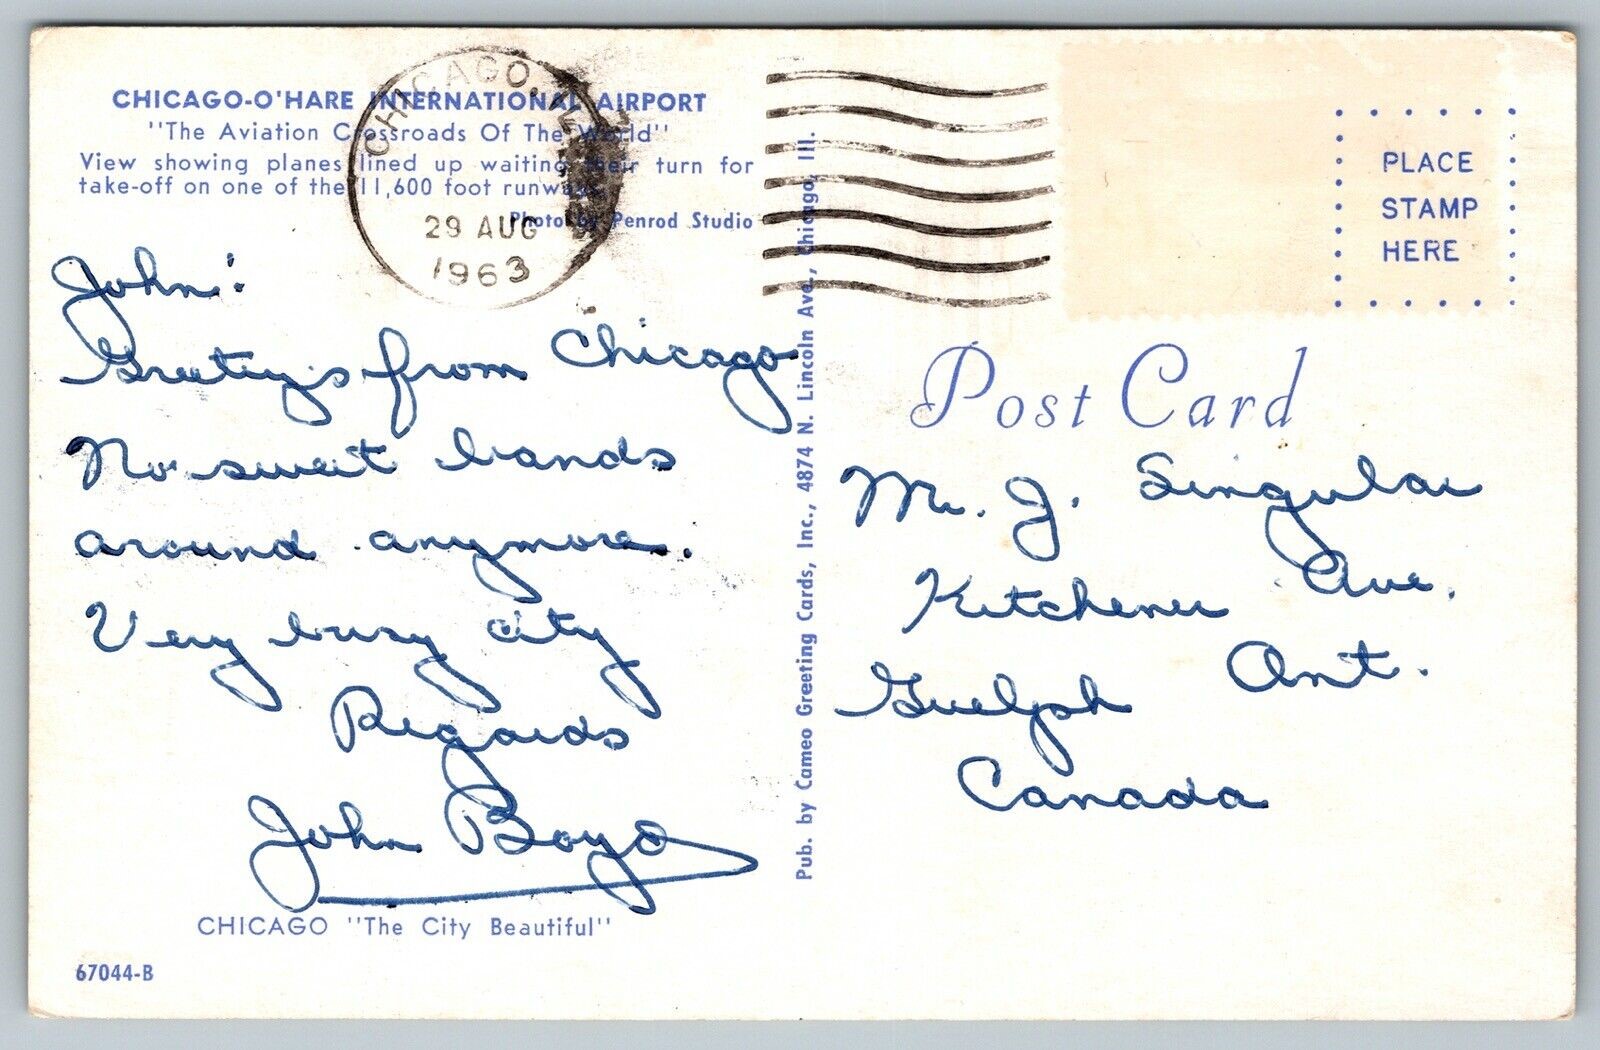 CHICAGO-O'HARE INTERNATIONAL AIRPORT
"The Aviation Crossroads Of The World"
View showing planes lined up waiting their turn for
take-off on one of the 11,600 foot runways.
Photo by Penrod Studio
CHICAGO,
29 AUG
1963
John:
Greetings from Chicago
No sweat bands
around anymore.
Very busy city
Regards
John Boyd
CHICAGO "The City Beautiful"
67044-B
Pub. by Cameo Greeting Cards, Inc., 4874 N. Lincoln Ave., Chicago, Ill.
PLACE
STAMP
HERE
Post Card
Mr. J. Singular
Kitchener Ave.
Guelph Ont.
Canada